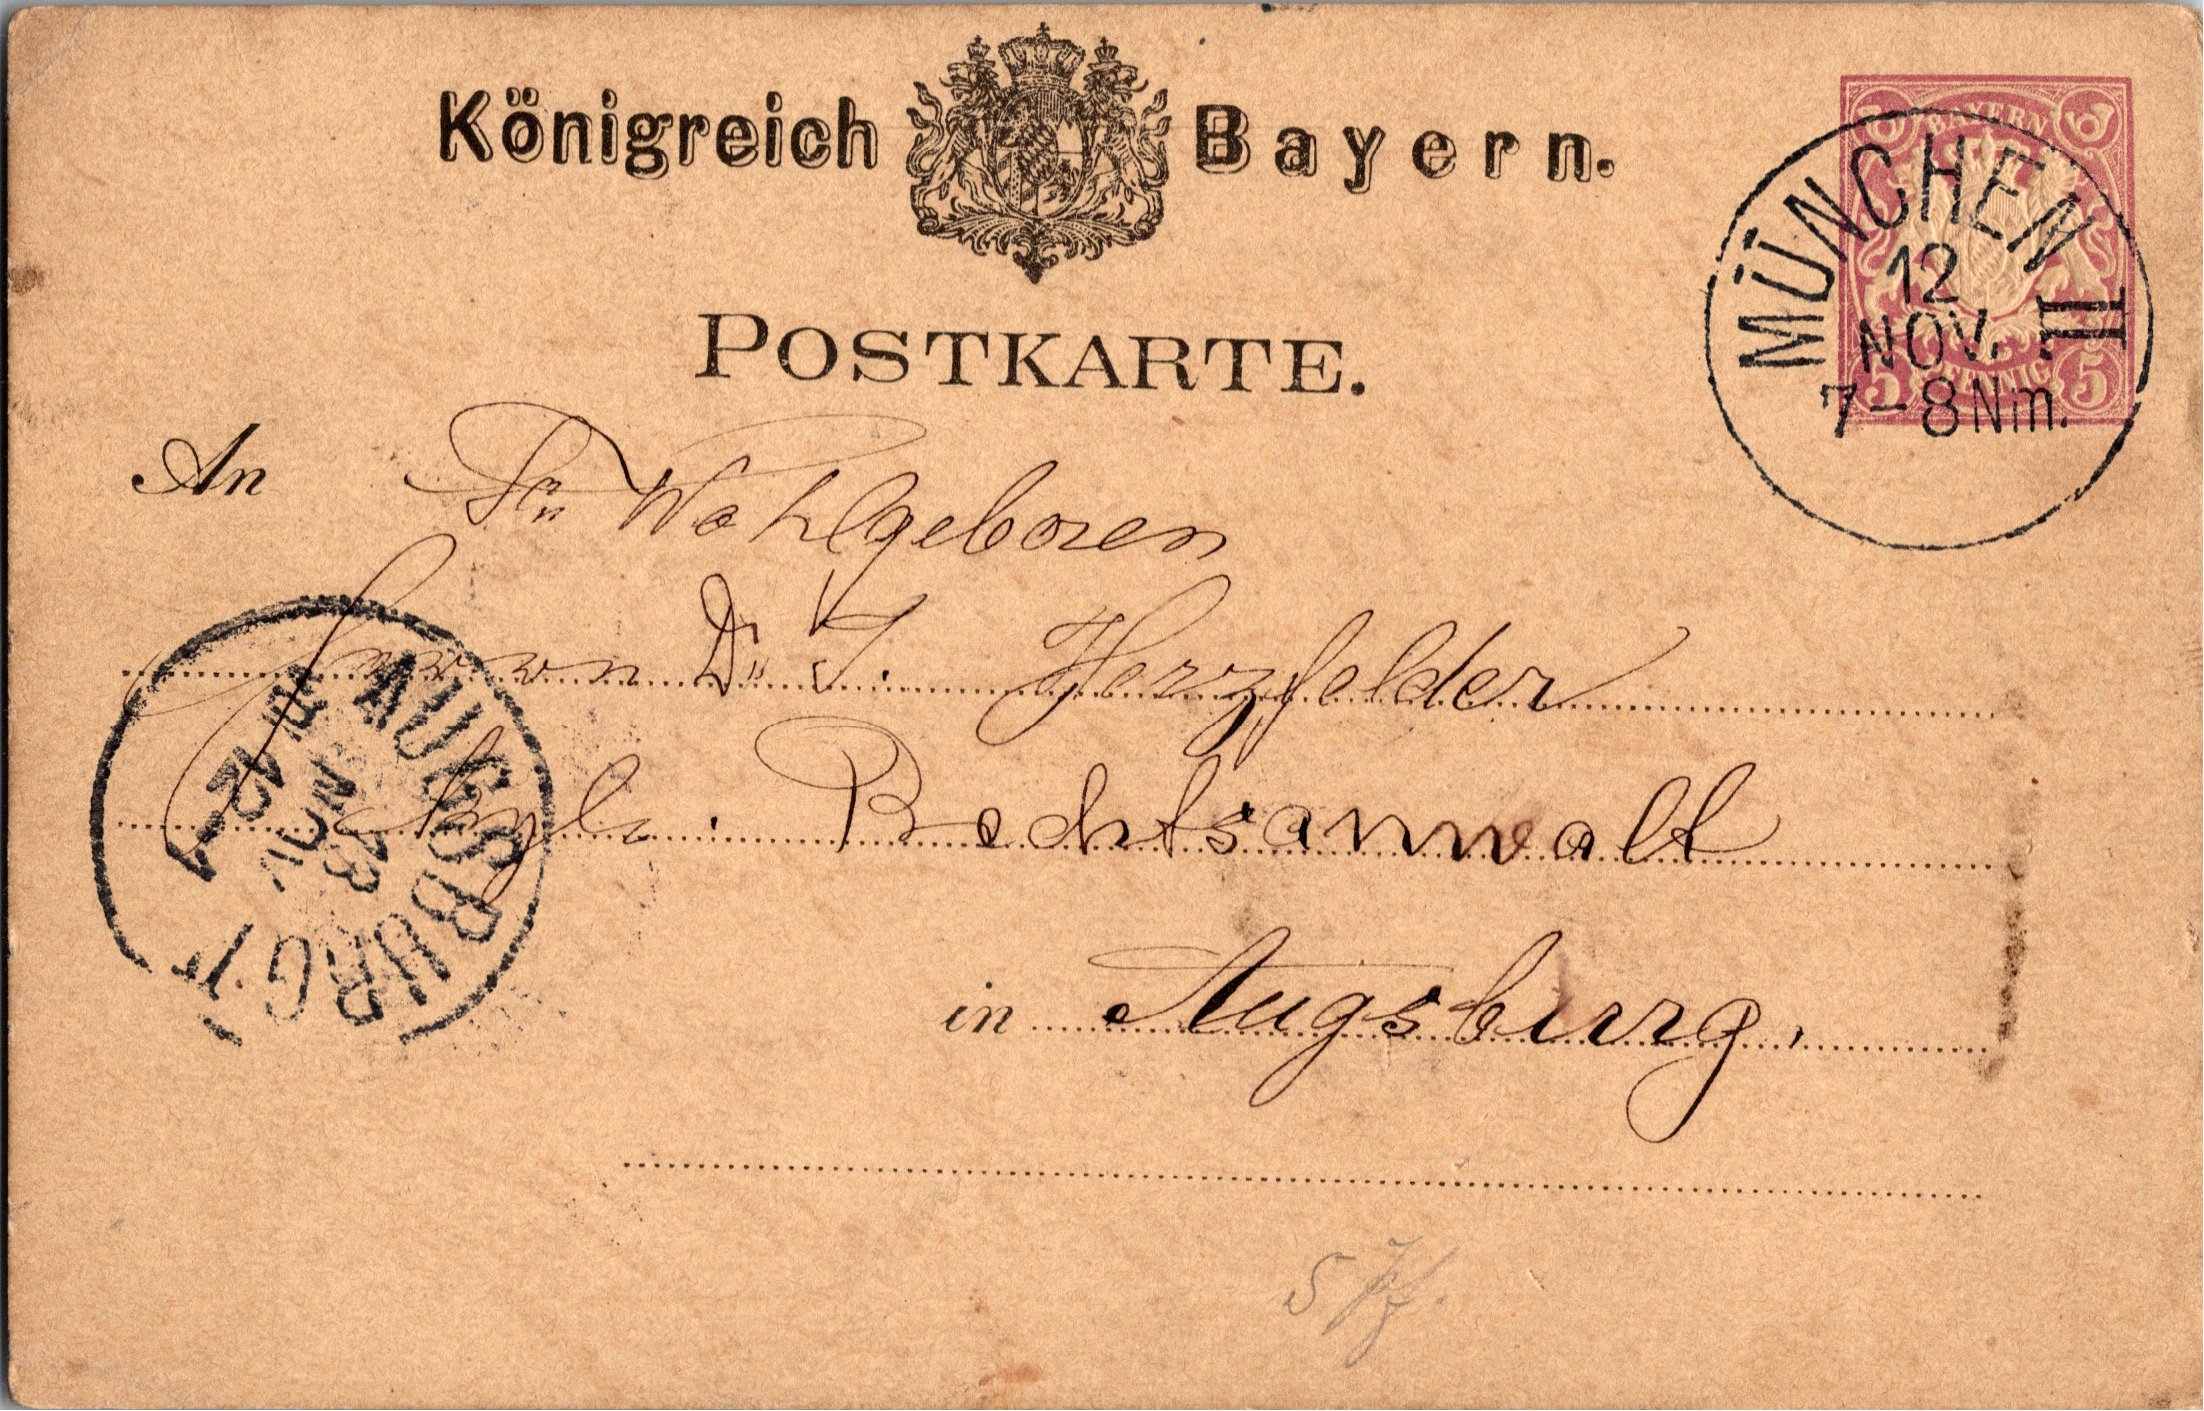 Königreich Bayern.
BAYERN
5 PFENNIG 5
MÜNCHEN III
12
NOV.
7-8Nm.
POSTKARTE.
An Sr. Wohlgeboren
Herrn Dr. J. Herzfelder
kgl. Rechtsanwalt
in Augsburg.
AUGSBURG I
NOV
5 Pf.